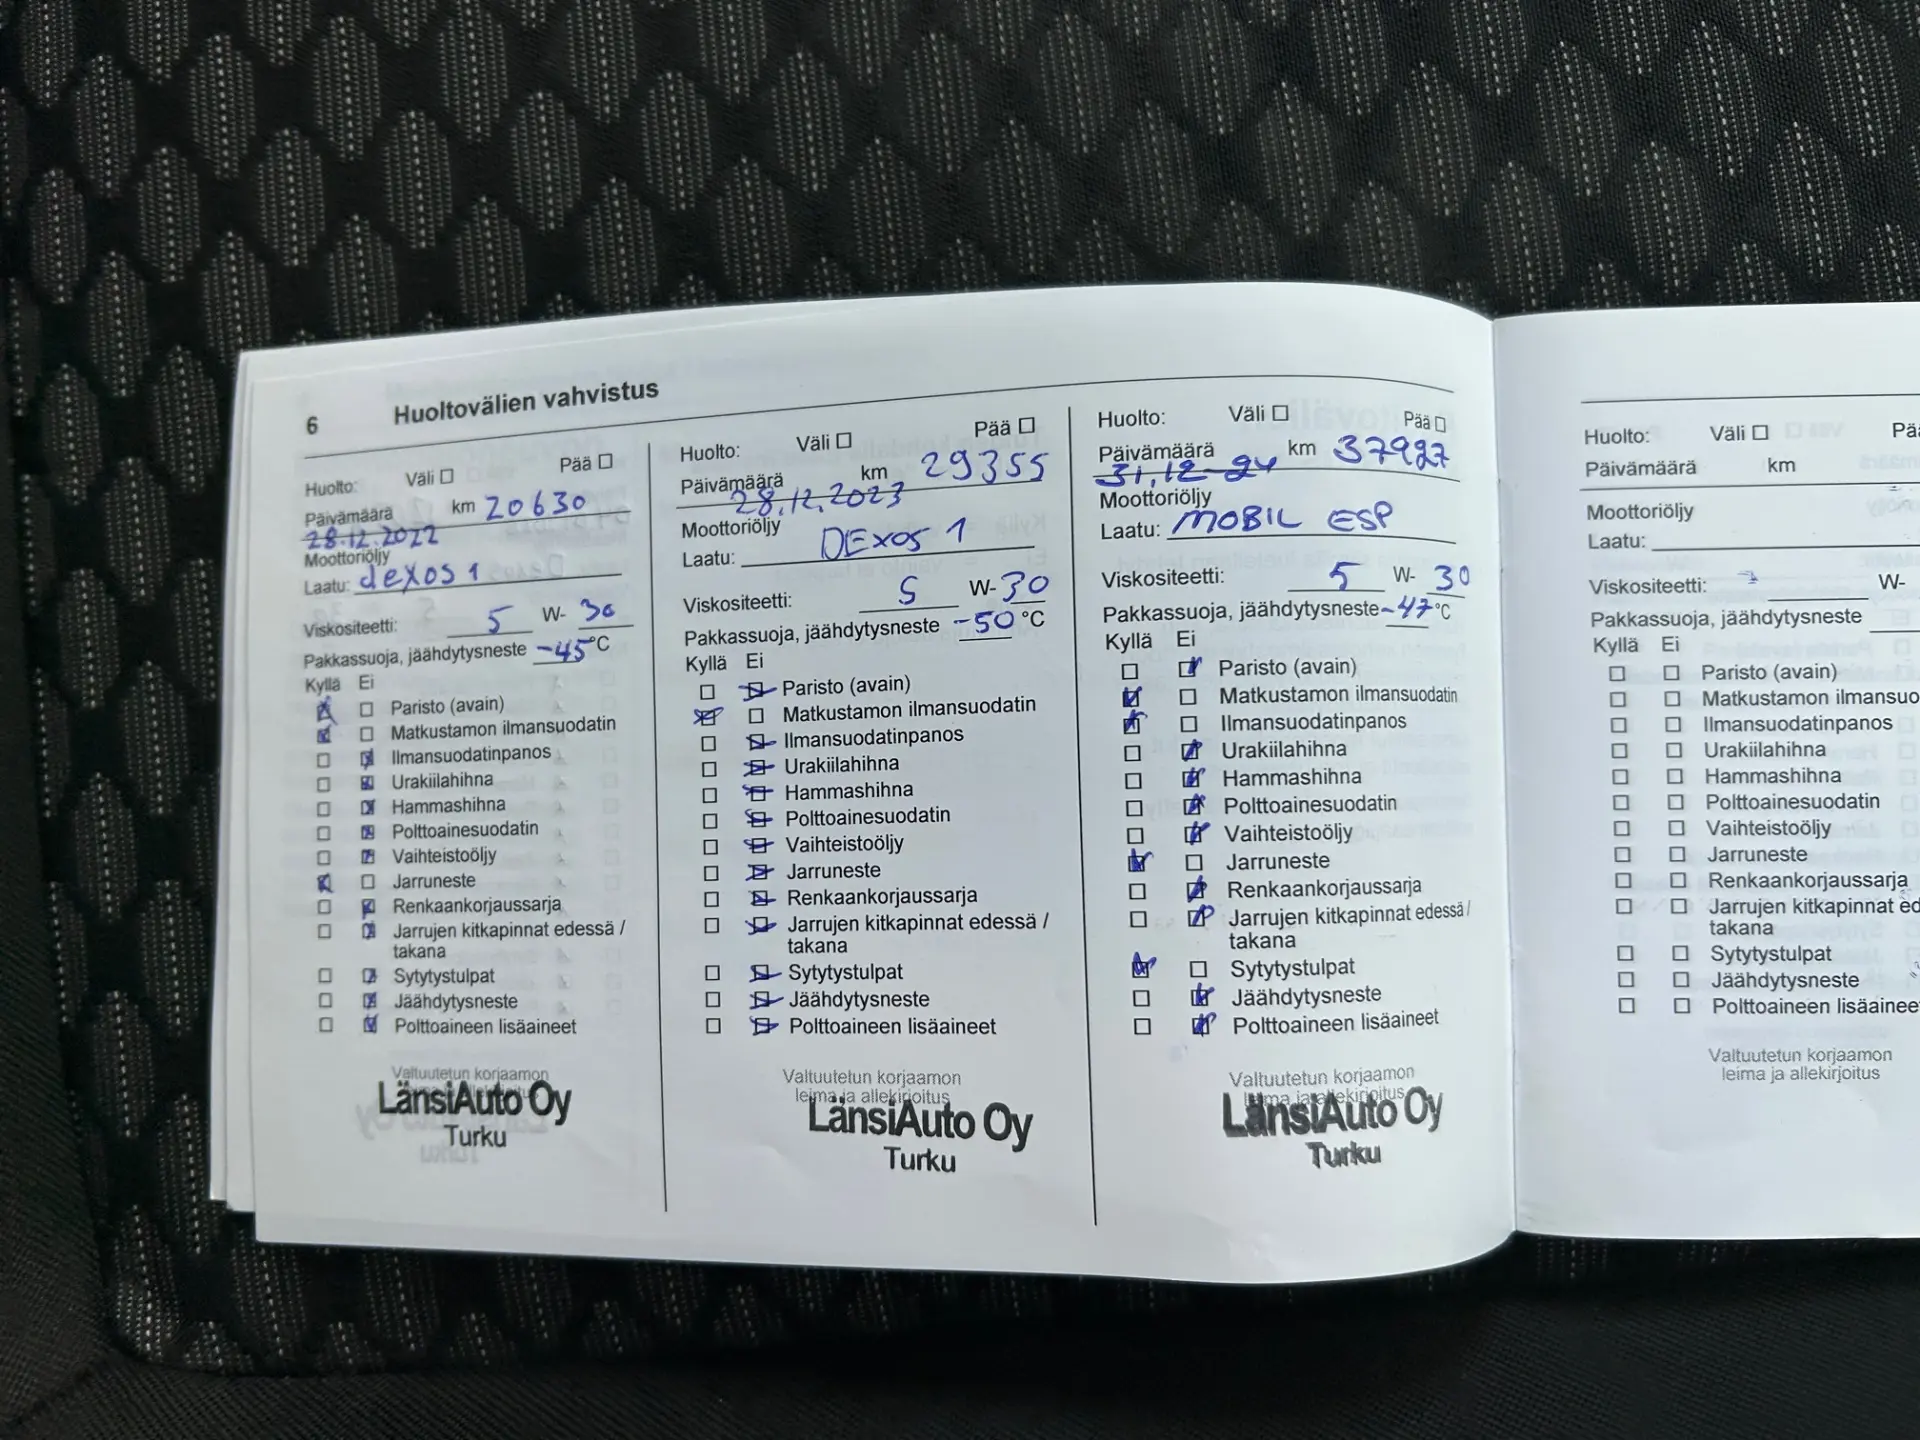 6 Huoltovälien vahvistus
Huolto: Väli Pää
Päivämäärä km 20630
28.12.2022
Moottoriöljy
Laatu: dexos 1
Viskositeetti: 5 W- 30
Pakkassuoja, jäähdytysneste -45°C
Kyllä Ei
Paristo (avain)
Matkustamon ilmansuodatin
Ilmansuodatinpanos
Urakiilahihna
Hammashihna
Polttoainesuodatin
Vaihteistoöljy
Jarruneste
Renkaankorjaussarja
Jarrujen kitkapinnat edessä /
takana
Sytytystulpat
Jäähdytysneste
Polttoaineen lisäaineet
Valtuutetun korjaamon
LänsiAuto Oy
Turku
Huolto: Väli Pää
Päivämäärä km 29355
28.12.2023
Moottoriöljy
Laatu: DExos 1
Viskositeetti: 5 W- 30
Pakkassuoja, jäähdytysneste -50 °C
Kyllä Ei
Paristo (avain)
Matkustamon ilmansuodatin
Ilmansuodatinpanos
Urakiilahihna
Hammashihna
Polttoainesuodatin
Vaihteistoöljy
Jarruneste
Renkaankorjaussarja
Jarrujen kitkapinnat edessä /
takana
Sytytystulpat
Jäähdytysneste
Polttoaineen lisäaineet
Valtuutetun korjaamon
leima ja allekirjoitus
LänsiAuto Oy
Turku
Huolto: Väli Pää
Päivämäärä km 37927
31.12-24
Moottoriöljy
Laatu: MOBIL ESP
Viskositeetti: 5 W- 30
Pakkassuoja, jäähdytysneste -47°C
Kyllä Ei
Paristo (avain)
Matkustamon ilmansuodatin
Ilmansuodatinpanos
Urakiilahihna
Hammashihna
Polttoainesuodatin
Vaihteistoöljy
Jarruneste
Renkaankorjaussarja
Jarrujen kitkapinnat edessä /
takana
Sytytystulpat
Jäähdytysneste
Polttoaineen lisäaineet
Valtuutetun korjaamon
leima ja allekirjoitus
LänsiAuto Oy
Turku
Huolto: Väli Pää
Päivämäärä km
Moottoriöljy
Laatu:
Viskositeetti: W-
Pakkassuoja, jäähdytysneste
Kyllä Ei
Paristo (avain)
Matkustamon ilmansuo
Ilmansuodatinpanos
Urakiilahihna
Hammashihna
Polttoainesuodatin
Vaihteistoöljy
Jarruneste
Renkaankorjaussarja
Jarrujen kitkapinnat ed
takana
Sytytystulpat
Jäähdytysneste
Polttoaineen lisäainee
Valtuutetun korjaamon
leima ja allekirjoitus